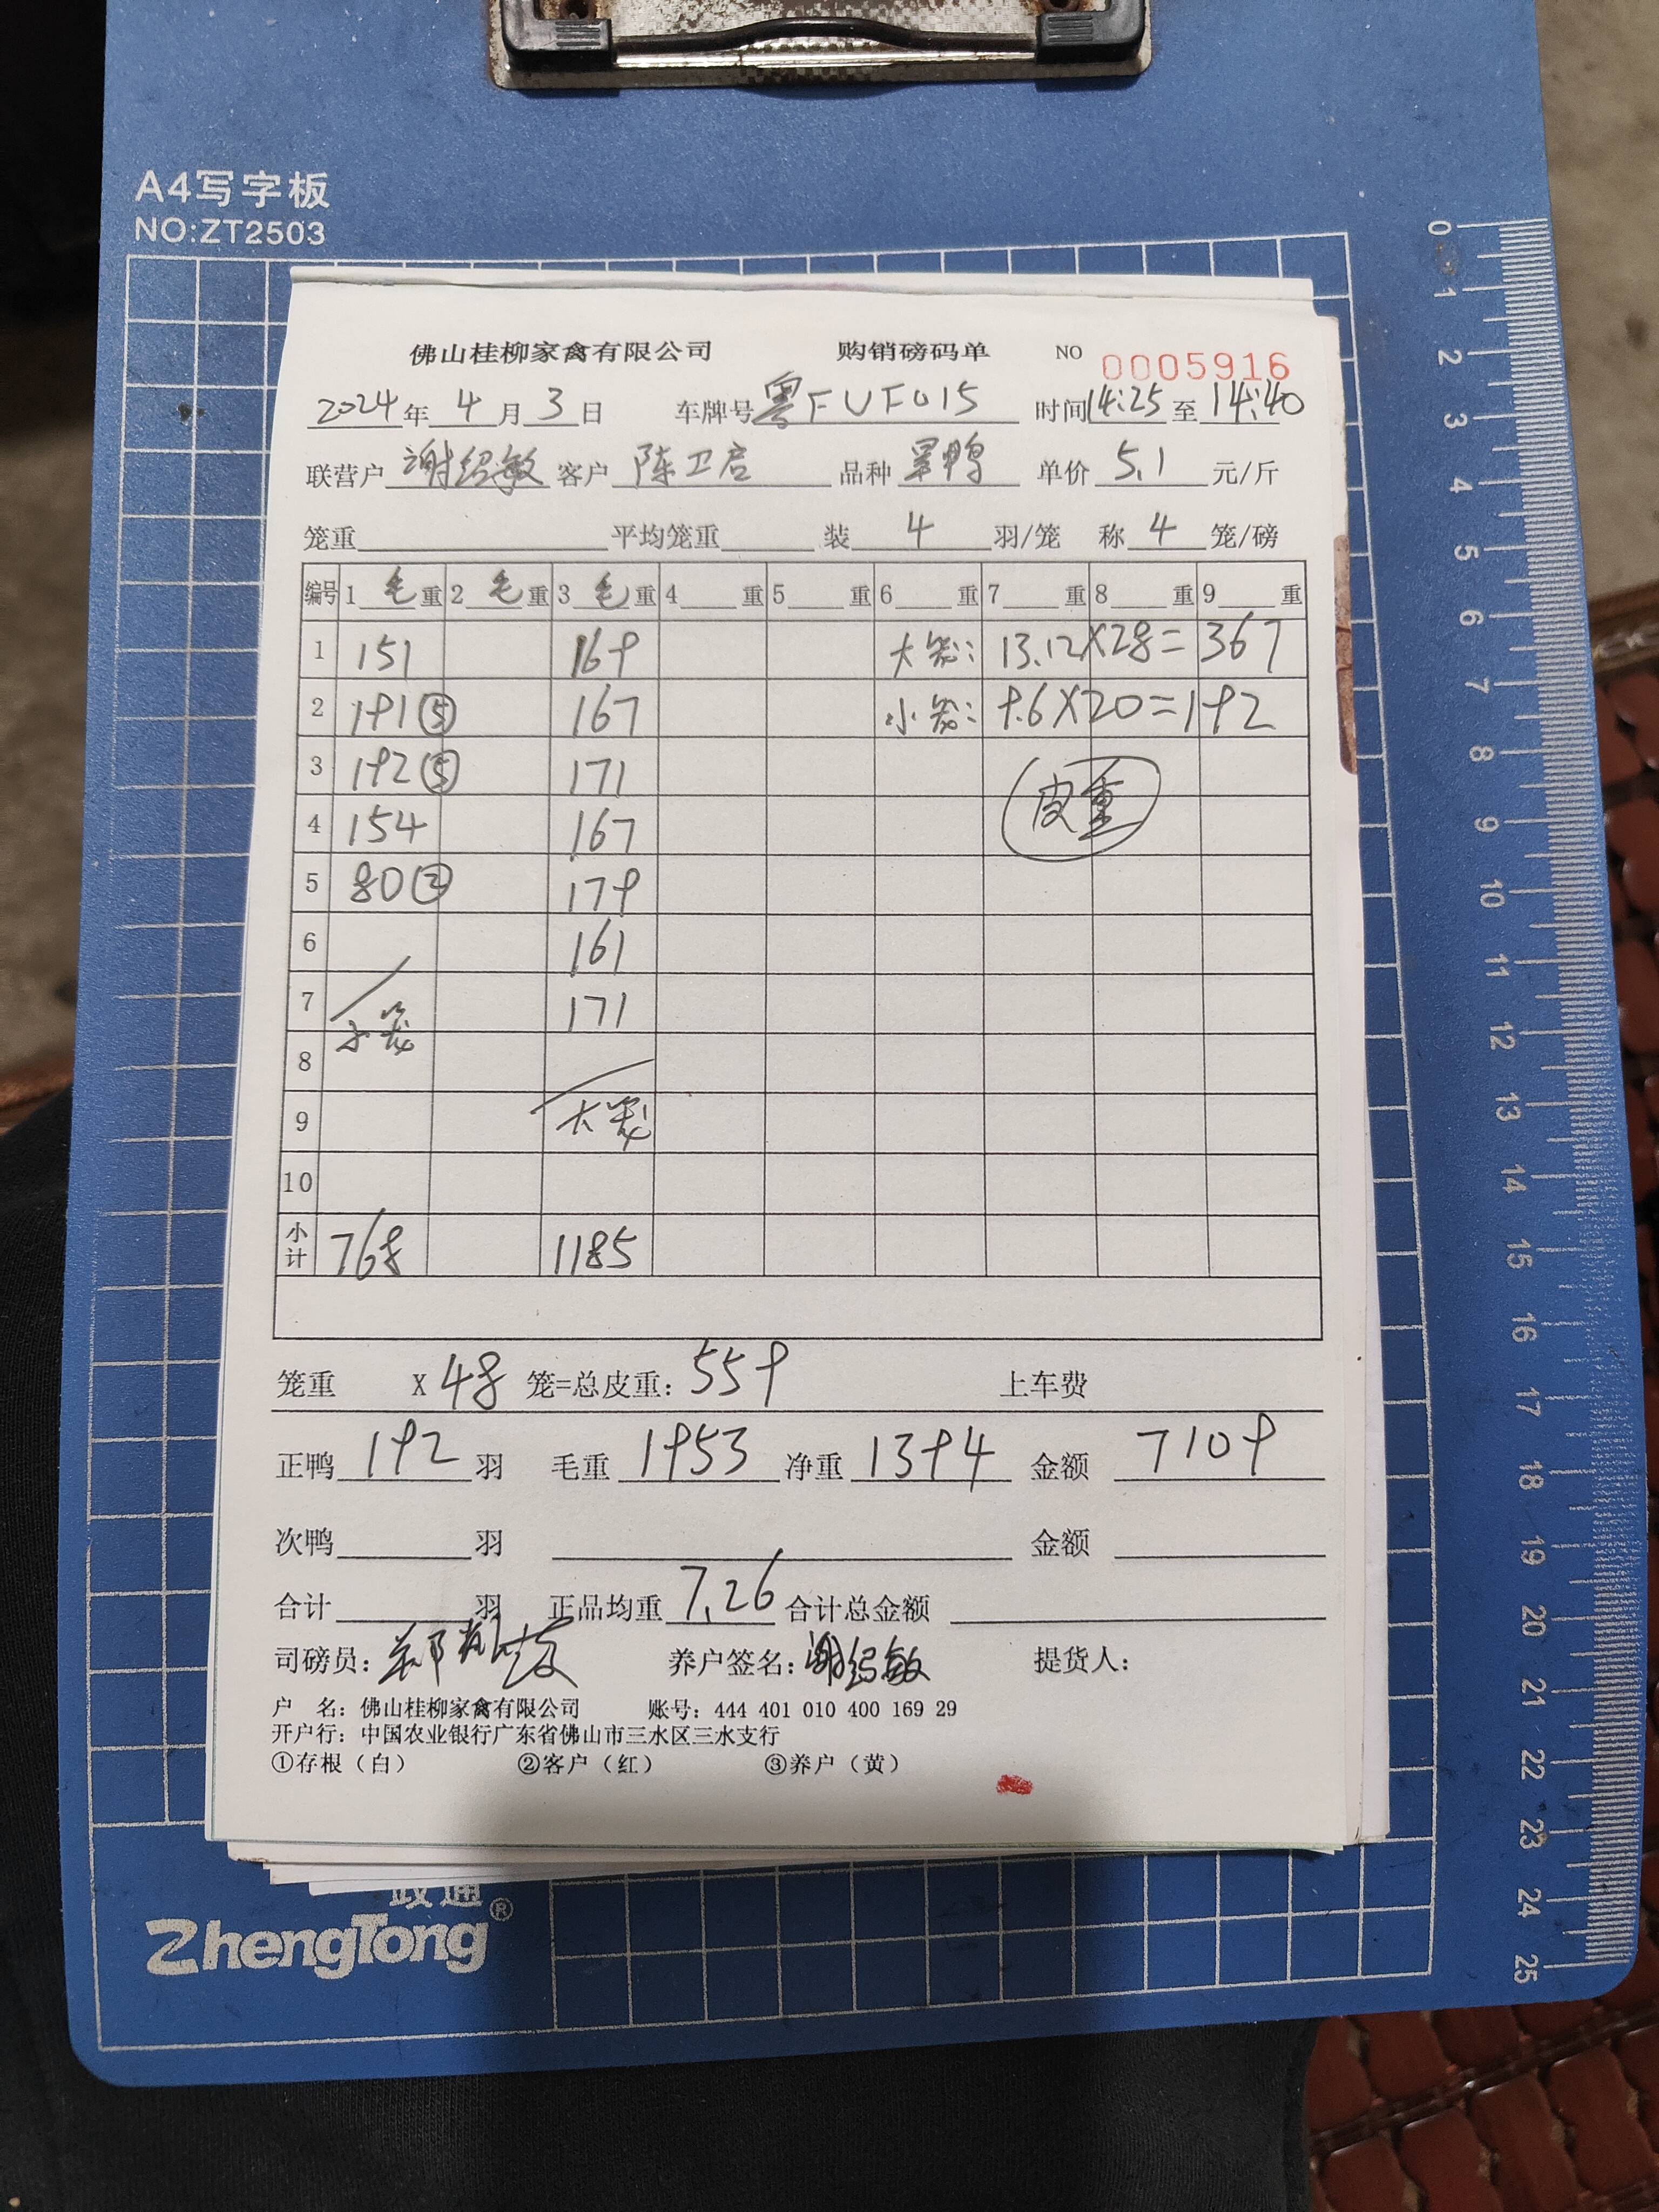 A4写字板
NO:ZT2503
佛山桂柳家禽有限公司 购销磅码单 NO 0005916
2024年4月3日 车牌号粤FUF015 时间14:25至14:40
联营户谢绍敏 客户陈卫启 品种 鸭 单价5.1元/斤
笼重 平均笼重 装4羽/笼 称4笼/磅
编号 1毛重 2毛重 3毛重 4重 5重 6重 7重 8重 9重
1 151 169 大笼: 13.12X28=367
2 191⑤ 167 小笼: 9.6X20=192
3 192⑤ 171 皮重
4 154 167
5 80② 179
6 161
7 171
小笼
8
9 大笼
10
小计 768 1185
笼重 X48 笼=总皮重:559 上车费
正鸭192羽 毛重1953 净重1394 金额7109
次鸭 羽 金额
合计 羽 正品均重7.26 合计总金额
司磅员:郑 养户签名:谢绍敏 提货人:
户 名: 佛山桂柳家禽有限公司 账号: 444 401 010 400 169 29
开户行: 中国农业银行广东省佛山市三水区三水支行
①存根（白） ②客户（红） ③养户（黄）
政通
ZhengTong®
0
1
2
3
4
5
6
7
8
9
10
11
12
13
14
15
16
17
18
19
20
21
22
23
24
25